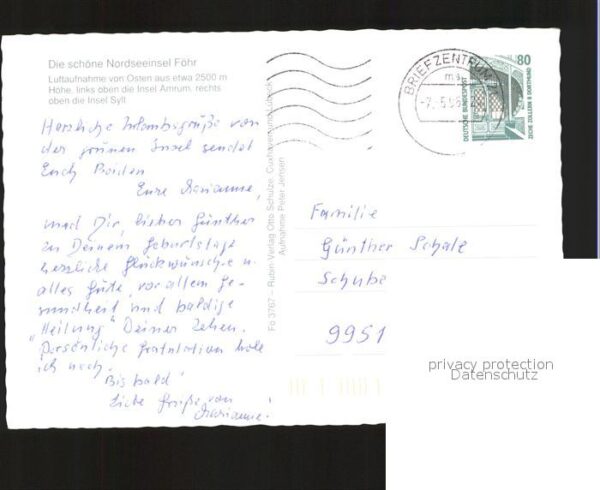 Die schöne Nordseeinsel Föhr
Luftaufnahme von Osten aus etwa 2500 m
Höhe, links oben die Insel Amrum, rechts
oben die Insel Sylt
Herzliche Urlaubsgrüße von
der grünen Insel sendet
Euch Beiden
Eure Marianne,
und Dir, lieber Günther
zu Deinem Geburtstage
herzliche Glückwünsche u.
alles Gute, vor allem Ge-
sundheit und baldige
"Heilung" Deiner Zehen.
Persönliche Gratulation hole
ich nach.
Bis bald
Liebe Grüße von
Marianne.
Fo 3767 – Rubin-Verlag Otto Schulze, Cuxhaven und Lübeck
Aufnahme Peter Jensen
BRIEFZENTRUM
80
DEUTSCHE BUNDESPOST
ZECHE ZOLLERN II DORTMUND
Familie
Günther Schale
Schube
9951
privacy protection
Datenschutz